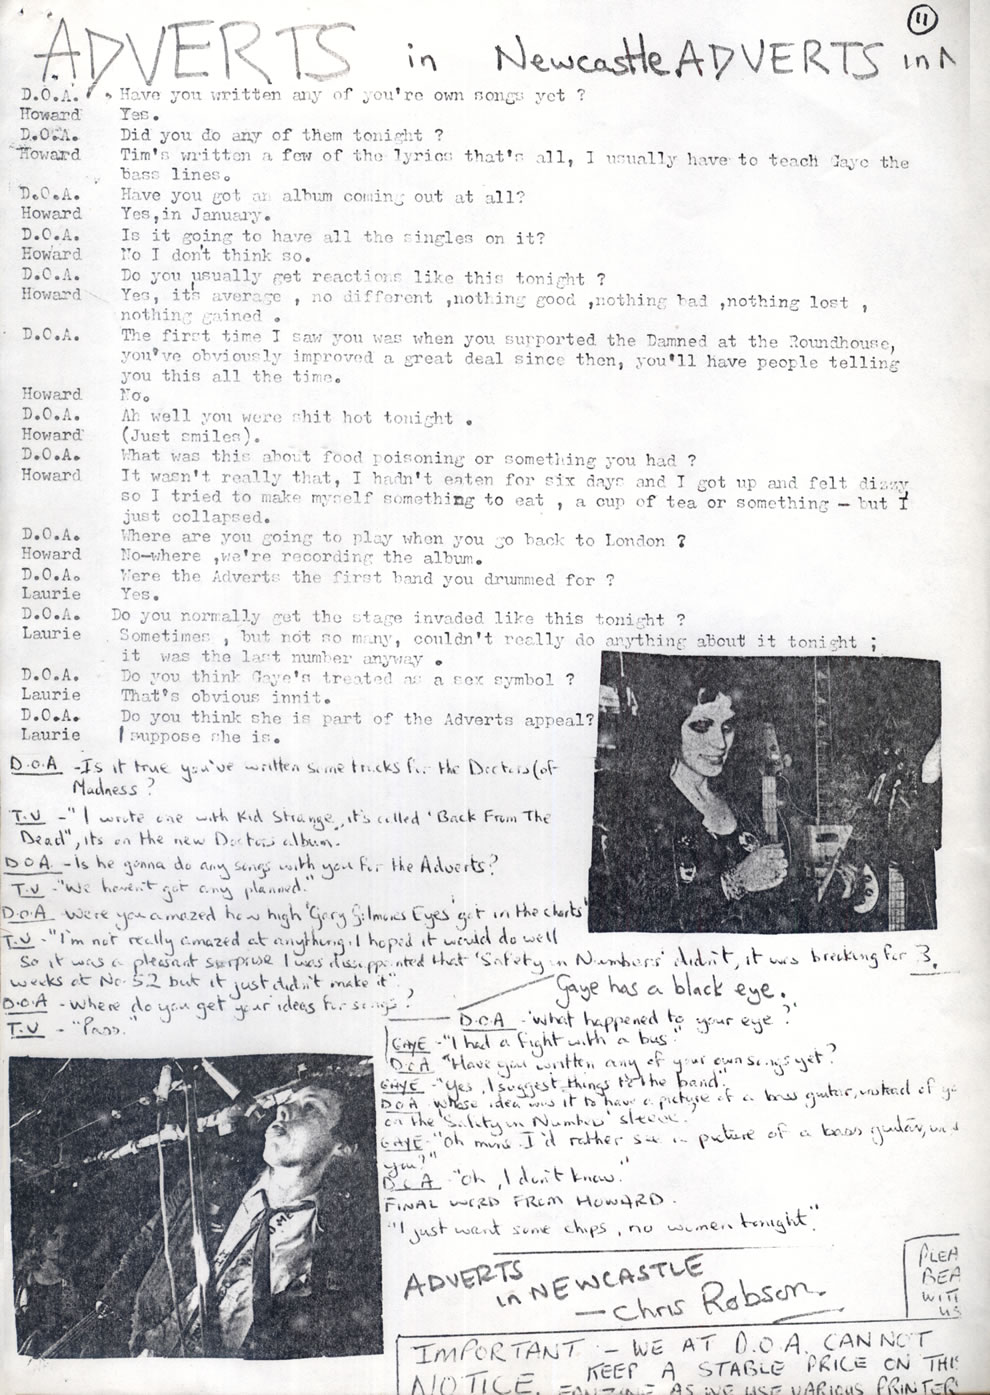 11
ADVERTS in Newcastle ADVERTS in N
D.O.A. Have you written any of you're own songs yet ?
Howard Yes.
D.O.A. Did you do any of them tonight ?
Howard Tim's written a few of the lyrics that's all, I usually have to teach Gaye the
bass lines.
D.O.A. Have you got an album coming out at all?
Howard Yes,in January.
D.O.A. Is it going to have all the singles on it?
Howard No I don't think so.
D.O.A. Do you usually get reactions like this tonight ?
Howard Yes, it's average , no different ,nothing good ,nothing bad ,nothing lost ,
nothing gained .
D.O.A. The first time I saw you was when you supported the Damned at the Roundhouse,
you've obviously improved a great deal since then, you'll have people telling
you this all the time.
Howard No.
D.O.A. Ah well you were shit hot tonight .
Howard (Just smiles).
D.O.A. What was this about food poisoning or something you had ?
Howard It wasn't really that, I hadn't eaten for six days and I got up and felt dizzy
so I tried to make myself something to eat , a cup of tea or something — but I
just collapsed.
D.O.A. Where are you going to play when you go back to London ?
Howard No-where ,we're recording the album.
D.O.A. Were the Adverts the first band you drummed for ?
Laurie Yes.
D.O.A. Do you normally get the stage invaded like this tonight ?
Laurie Sometimes , but not so many, couldn't really do anything about it tonight ;
it was the last number anyway .
D.O.A. Do you think Gaye's treated as a sex symbol ?
Laurie That's obvious innit.
D.O.A. Do you think she is part of the Adverts appeal?
Laurie I suppose she is.
D.O.A - Is it true you've written some tracks for the Doctors (of
Madness ?
T.V - "I wrote one with Kid Strange, it's called 'Back From The
Dead", its on the new Doctors album.
D.O.A. - Is he gonna do any songs with you for the Adverts?
T.V - "We haven't got any planned."
D.O.A - Were you amazed how high 'Gary Gilmores Eyes' got in the charts'
T.V - "I'm not really amazed at anything, I hoped it would do well
So it was a pleasant surprise I was dissappointed that 'Safety in Numbers' didn't, it was breaking for 3.
weeks at No. 52 but it just didn't make it",
D.O.A - Where do you get your ideas for songs ?
T.V - "Pass."
Gaye has a black eye.
D.O.A - 'What happened to your eye ?'
GAYE - "I had a fight with a bus."
D.O.A "Have you written any of your own songs yet ?
GAYE - "Yes, I suggest things to the band".
D.O.A Whose idea was it to have a picture of a bass guitar, instead of
on the 'Safety in Number' sleeve.
GAYE - "Oh mine. I'd rather see a picture of a bass guitar,
you?"
D.O.A - "Oh, I don't know."
FINAL WORD FROM HOWARD.
"I just want some chips, no women tonight".
ADVERTS
in NEWCASTLE
— Chris Robson.
PLEA
BEA
WIT
US
IMPORTANT - WE AT D.O.A. CANNOT
KEEP A STABLE PRICE ON THI
NOTICE. FANZINE AS WE USE VARIOUS PRINTER